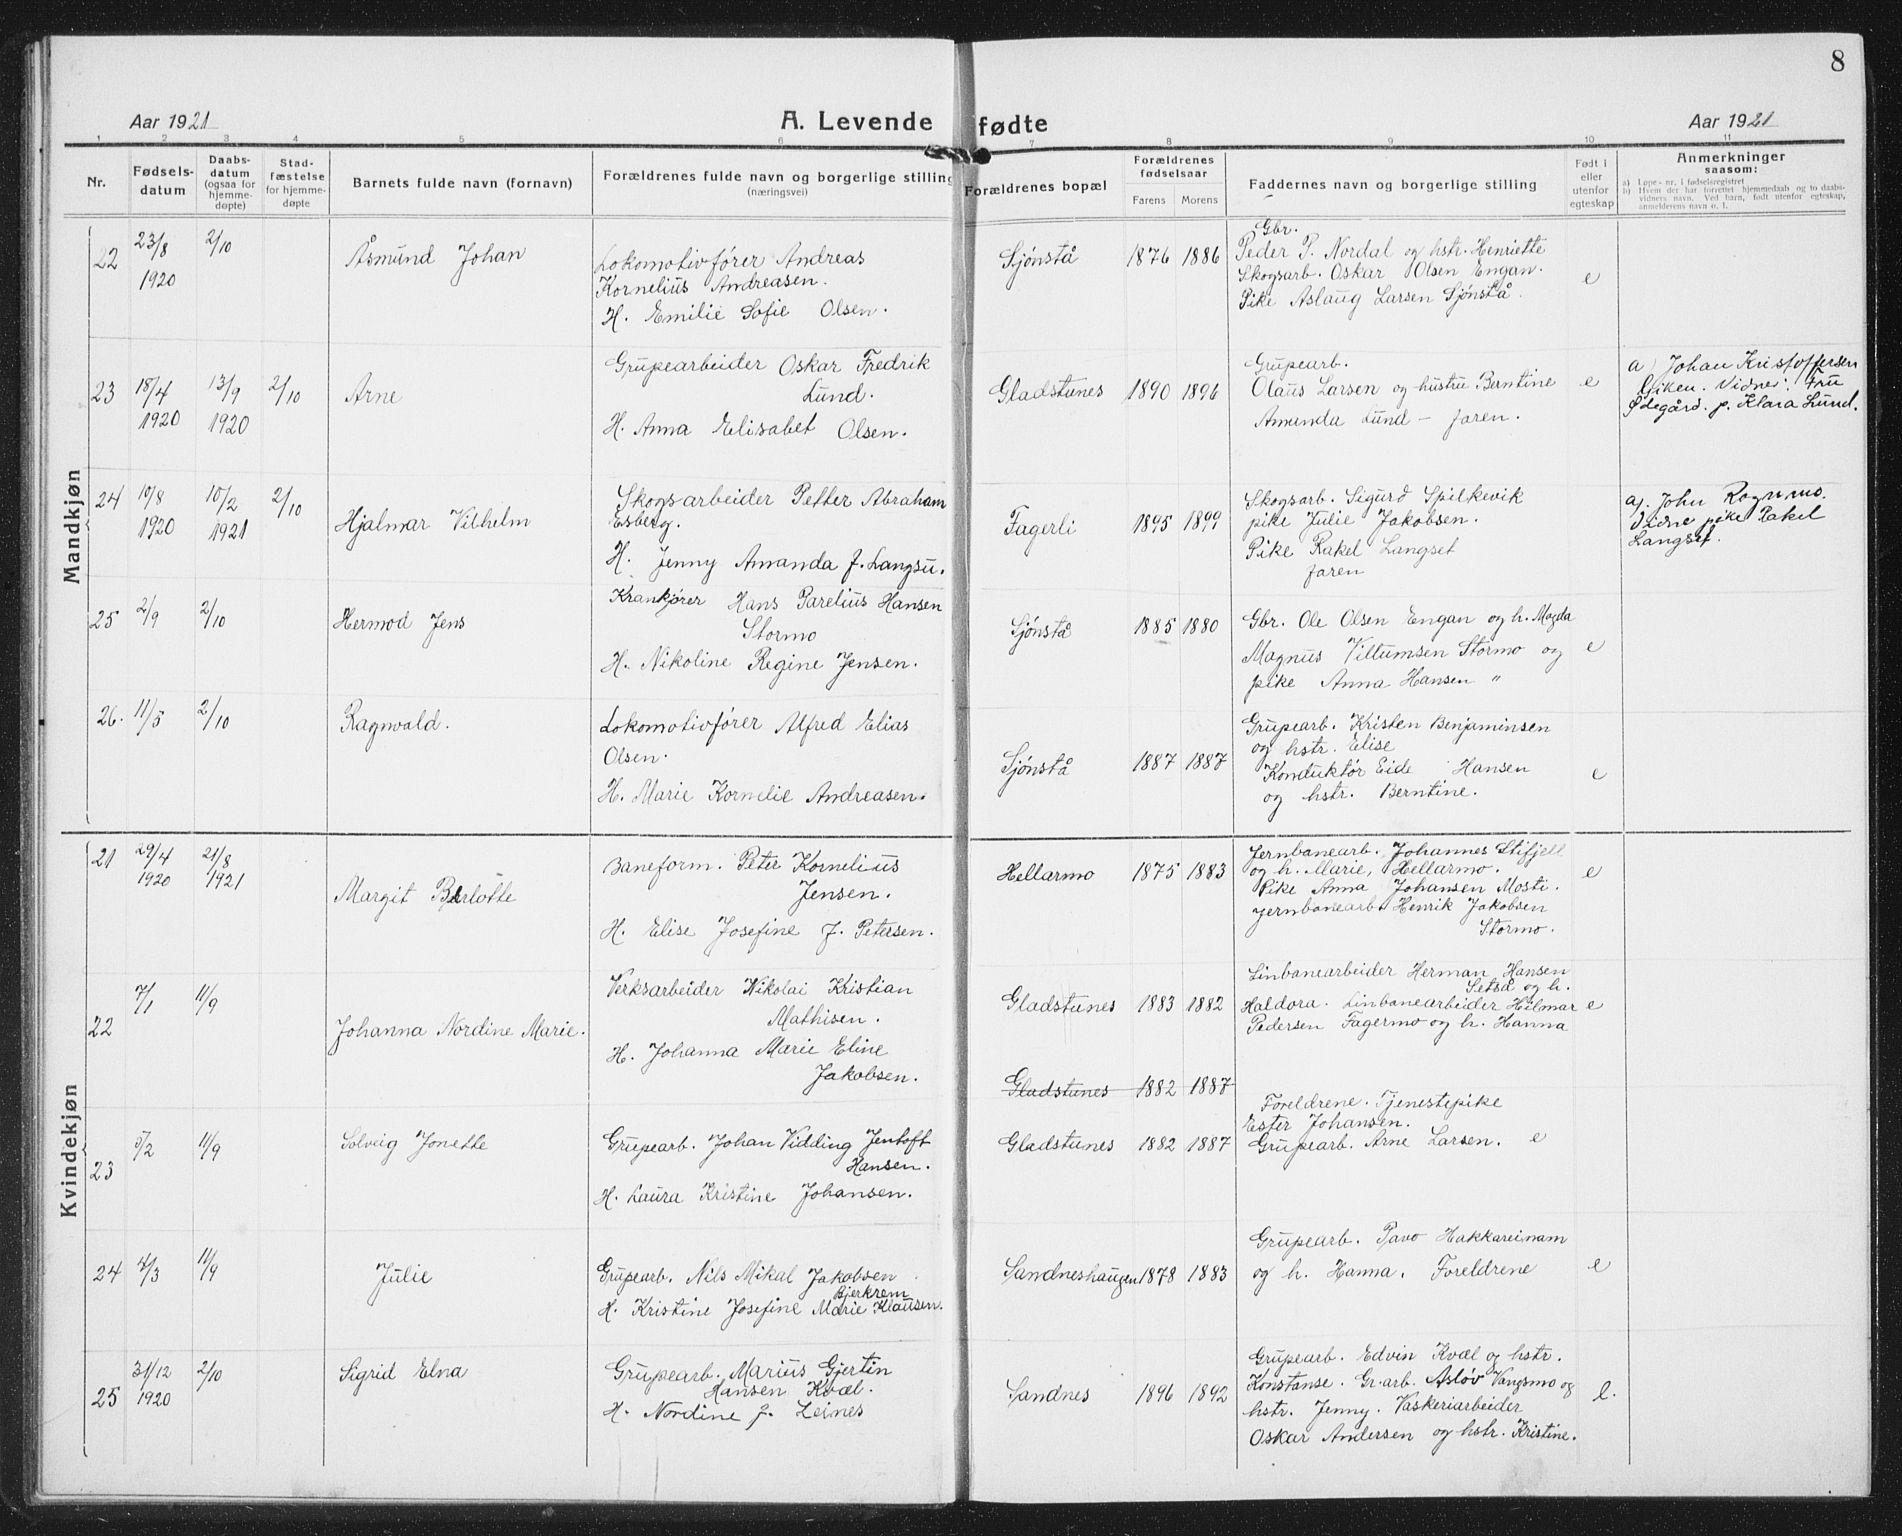 8
Aar 1921
A. Levende fødte
Aar 1921
1 2 3 4 5 6 7 8 9 10 11
Nr.
Fødsels-
datum
Daabs-
datum
(ogsaa for
hjemme-
døpte)
Stad-
fæstelse
for hjemme-
døpte
Barnets fulde navn (fornavn)
Forældrenes fulde navn og borgerlige stilling
(næringsvei)
Forældrenes bopæl
Forældrenes
fødselsaar
Farens Morens
Faddernes navn og borgerlige stilling
Født i
eller
utenfor
egteskap
Anmerkninger
saasom:
a) Løpe-nr. i fødselsregistret
b) Hvem der har forrettet hjemmedaab og to daabs-
vidners navn. Ved barn, født utenfor egteskap,
anmelderens navn o. l.
Mandkjøn
22
23/8
1920
2/10
Åsmund Johan
Lokomotivfører Andreas
Kornelius Andreasen.
H. Emilie Sofie Olsen.
Sjönstå
1876 1886
Gbr.
Peder P. Nordal og hstr. Henriette
Skogsarb. Oskar Olsen Engan.
Pike Aslaug Larsen Sjönstå.
e
23
18/4
1920
13/9
1920
2/10
Arne
Grupearbeider Oskar Fredrik
Lund.
H. Anna Elisabet Olsen.
Gladstunes
1890 1896
Grupearb.
Olaus Larsen og hustru Berntine
Amunda Lund – faren.
e
a) Johan Kristoffersen
Vidner: Fru
Ødegård. p. Klara Lund.
24
10/8
1920
10/2
1921
2/10
Hjalmar Vilhelm
Skogsarbeider Petter Abraham
Esberg.
H. Jenny Amanda f. Langsu.
Fagerli
1895 1899
Skogsarb. Sigurd Spilkevik
pike Julie Jakobsen.
Pike Rakel Langset
faren
a). John Rognmo.
Vidne pike Rakel
Langset.
25
2/9
2/10
Hermod Jens
Krankjører Hans Parelius Hansen
Stormo
H. Nikoline Regine Jensen.
Sjönstå
1885 1880
Gbr. Ole Olsen Engan og h. Magda
Magnus Viltumsen Stormo og
pike Anna Hansen "
e
26.
11/5
2/10
Ragnvald.
Lokomotivfører Alfred Elias
Olsen.
H. Marie Kornelie Andreasen.
Sjönstå
1887 1887
Grupearb. Kristen Benjaminsen
og hstr. Elise
Konduktør Eide Hansen
og hstr. Berntine.
e
Kvindekjøn
21
29/4
1920
21/8
1921
Margit Berlotte
Baneform. Peter Kornelius
Jensen.
H. Elise Josefine J. Petersen.
Hellarmo
1875 1883
Jernbanearb. Johannes Stifjell
og h. Marie, Hellarmo.
Pike Anna Johansen Mosti.
Jernbanearb. Henrik Jakobsen
Stormo.
e
22
7/1
11/9
Johanna Nordine Marie.
Verksarbeider Nikolai Kristian
Mathisen.
H. Johanna Marie Eline
Jakobsen.
Gladstunes
1883 1882
Linbanearbeider Herman Hansen
Setså og h.
Haldora. Linbanearbeider Hilmar
Pedersen Fagermo og h. Hanna
e
Gladstunes 1882 1887
23
5/2
11/9
Solveig Jonette
Grupearb. Johan Vidding Jentoft
Hansen.
H. Laura Kristine Johansen.
Gladstunes
1882 1887
Foreldrene. Tjenestepike
Ester Johansen.
Grupearb. Arne Larsen.
e
24
4/3
11/9
Julie
Grupearb. Nils Mikal Jakobsen
Bjerkrem
H. Kristine Josefine Marie Klausen.
Sandneshaugen
1878 1883
Grupearb. Pavo Hakkareinam
og h. Hanna. Foreldrene
e
25
31/12
1920
2/10
Sigrid Elna
Grupearb. Marius Gjertin
Hansen Kvæl.
H. Nordine f. Leines
Sandnes
1896 1892
Grupearb. Edvin Kvæl og hstr.
Konstanse. Gr.arb. Asløv Vangsmo og
hstr. Jenny. Vaskeriarbeider
Oskar Andersen og hstr. Kristine.
e.